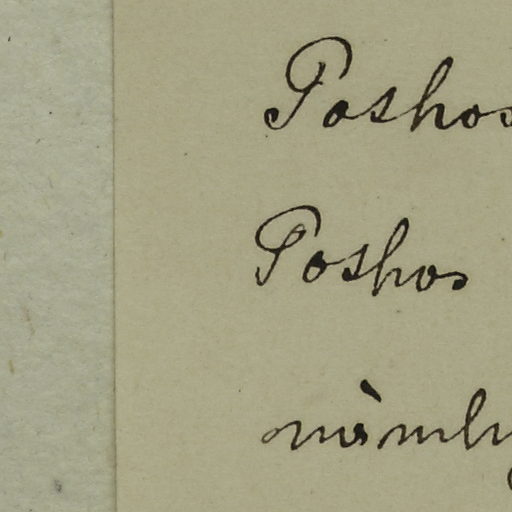 Poshos
Poshos